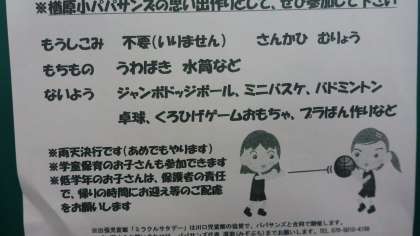 ※楢原小パパサンズの思い出作りとして、ぜひ参加して下さい
もうしこみ 不要(いりません) さんかひ むりょう
もちもの うわばき 水筒など
ないよう ジャンボドッジボール、ミニバスケ、バドミントン
卓球、くろひげゲームおもちゃ、プラばん作りなど
※雨天決行です(あめでもやります)
※学童保育のお子さんも参加できます
※低学年のお子さんは、保護者の責任
で、帰りの時間にお迎え等のご配慮
をお願いします
「ミラクルサタデー」は川口児童館の協賛で、パパサンズと合同で開催します。